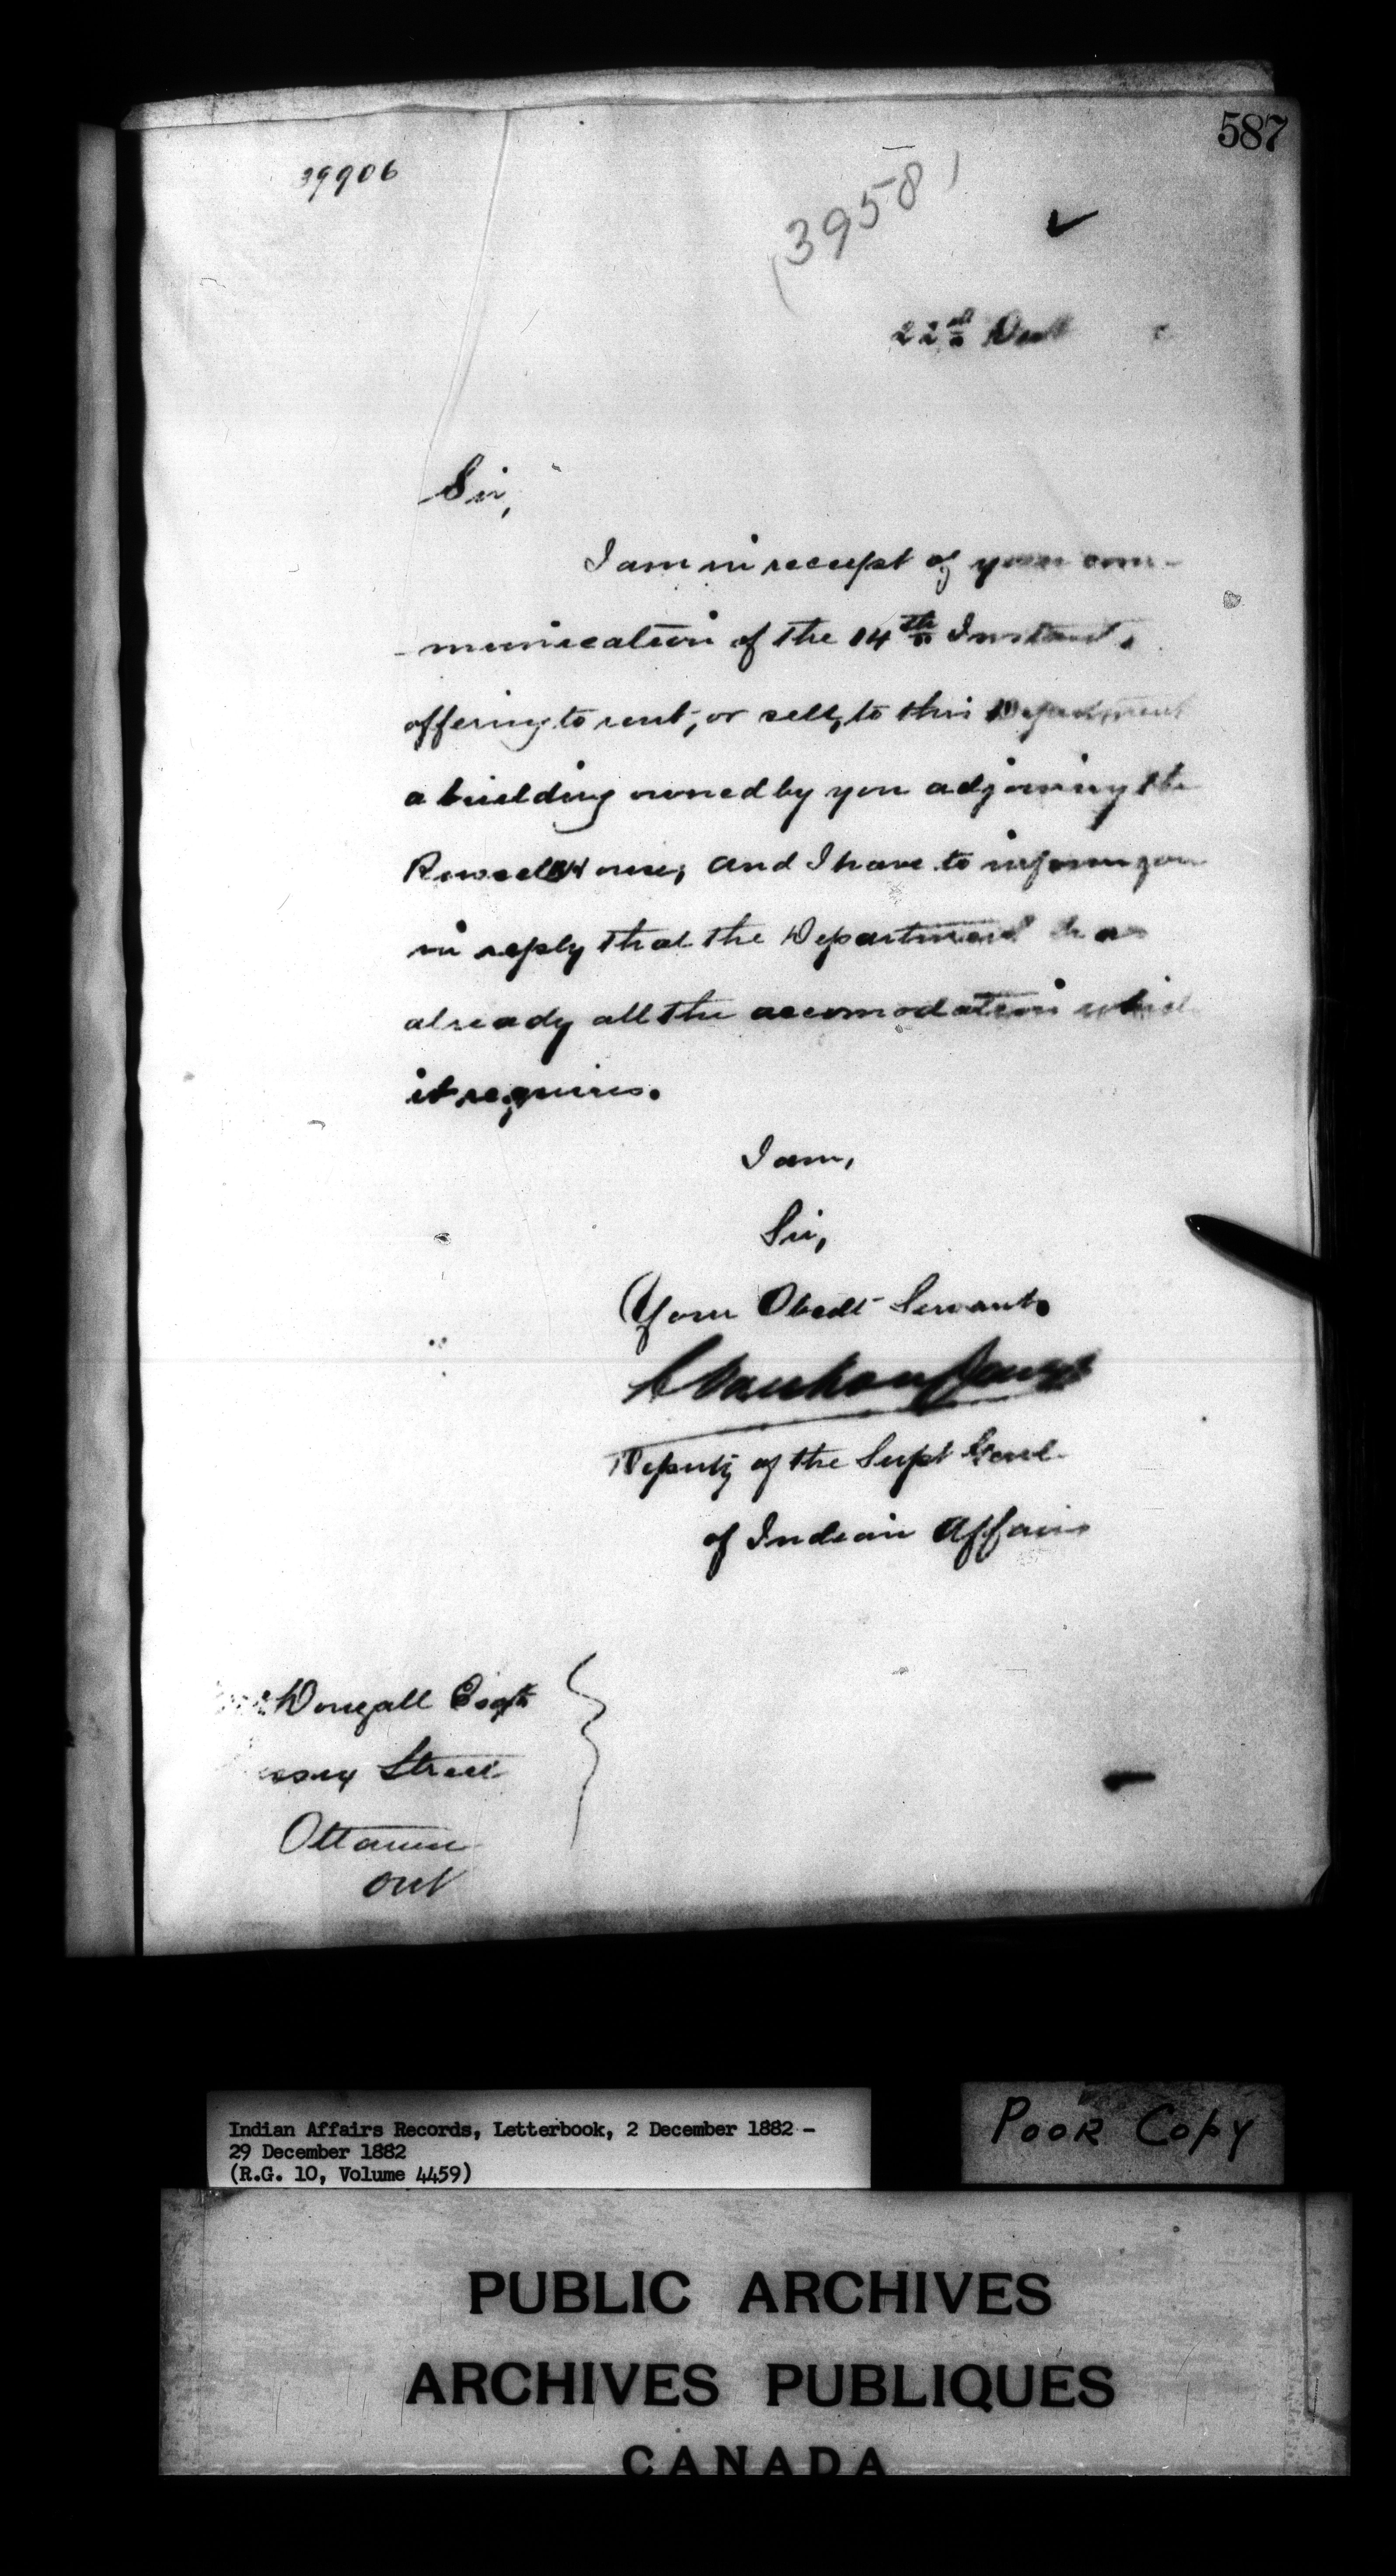 587
39906
39581
22nd Dect
Sir,
I am in receipt of your com-
-munication of the 14th Instant,
offering to rent, or sell, to this Department
a building owned by you adjoining the
House, and I have to inform you
in reply that the Department has
already all the accomodation which
it requires.
I am,
Sir,
Your Obedt Servant.
L Vankoughnet
Deputy of the Supt Genl
of Indian Affairs
Dougall Esqre
Street
Ottawa
Ont
Indian Affairs Records, Letterbook, 2 December 1882 -
29 December 1882
(R.G. 10, Volume 4459)
POOR COPY
PUBLIC ARCHIVES
ARCHIVES PUBLIQUES
CANADA